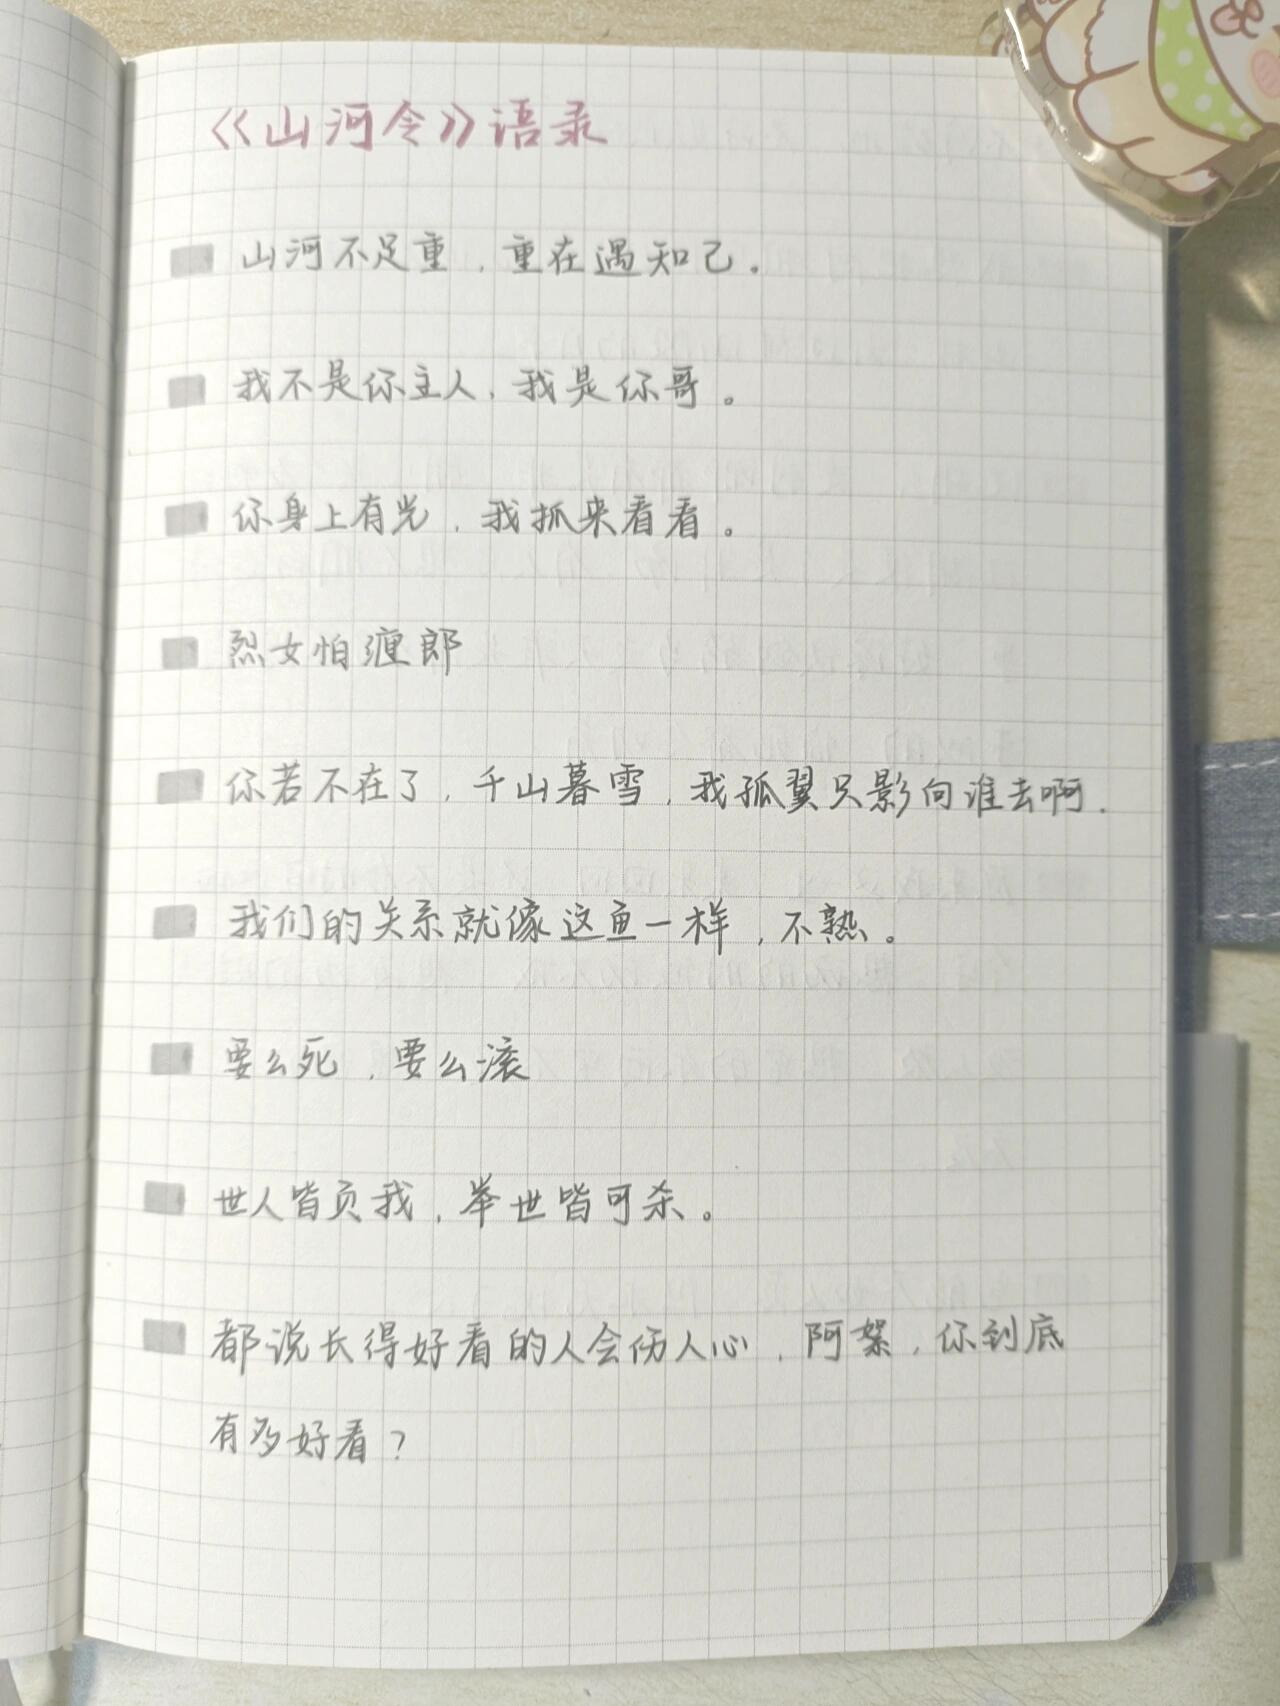 《山河令》语录
山河不足重，重在遇知己。
我不是你主人，我是你哥。
你身上有光，我抓来看看。
烈女怕缠郎
你若不在了，千山暮雪，我孤翼只影向谁去啊.
我们的关系就像这鱼一样，不熟。
要么死，要么滚
世人皆负我，举世皆可杀。
都说长得好看的人会伤人心，阿絮，你到底
有多好看？